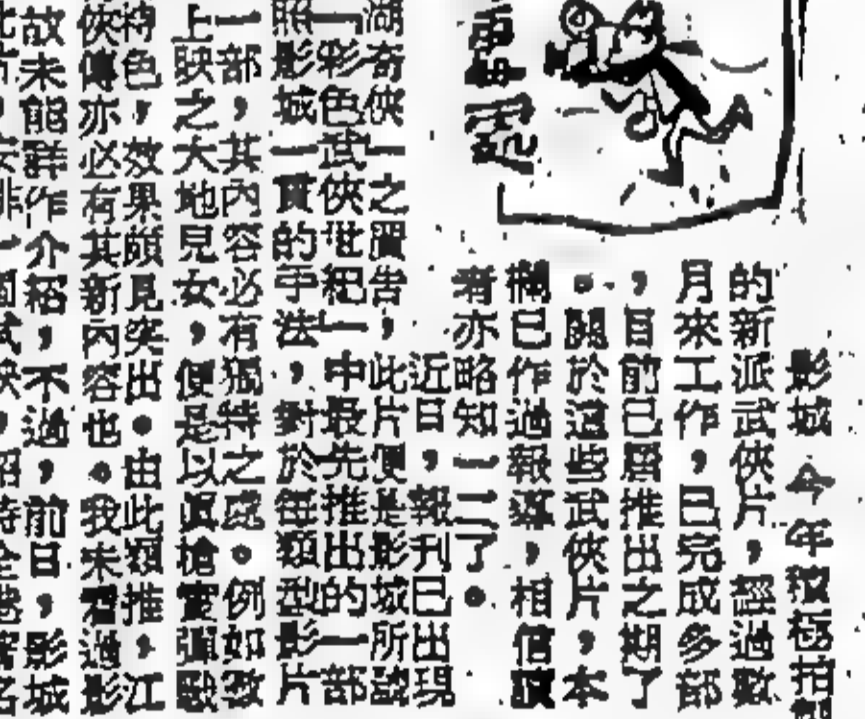 影城今年積極拍製
的新派武俠片，經過數
月來工作，已完成多部
，目前已屆推出之期了
。關於這些武俠片，本
欄已作過報導，相信讀
者亦略知一二了。
近日，報刊已出現
湖奇俠」之預告，此片便是影城所謂
「彩色武俠世紀」中最先推出的一部
照影城一貫的手法，對於每類型影片
一部，其內容必有獨特之處。例如教
上映之大地兒女，便是以真槍實彈戰
特色，效果頗見突出。由此類推，江
俠傳亦必有其新內容也。我未看過影
故未能詳作介紹，不過，前日，影城